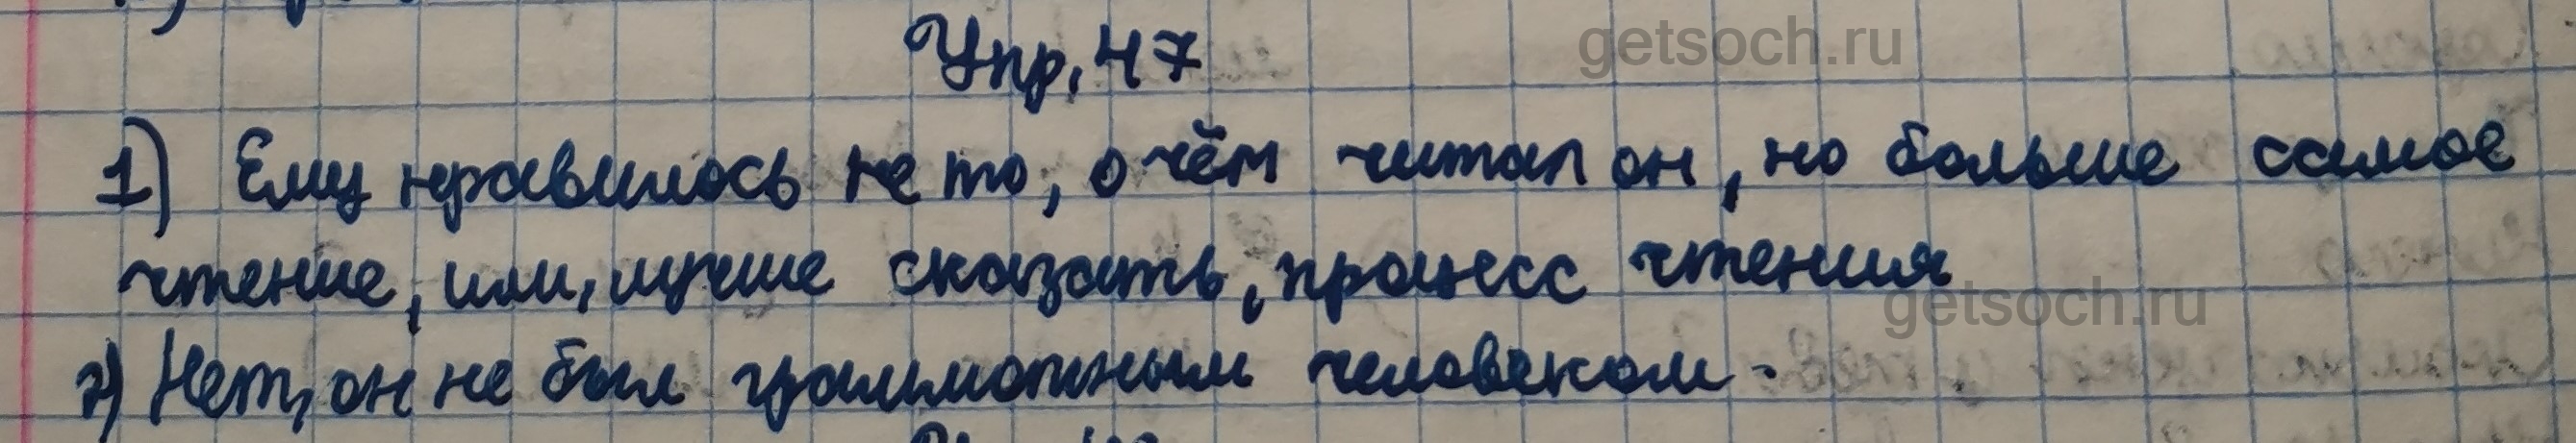 Упр. 47
getsoch.ru
1) Ему нравилось не то, о чём читал он, но больше самое
чтение, или, лучше сказать, процесс чтения
getsoch.ru
2) Нет, он не был грамотным человеком.